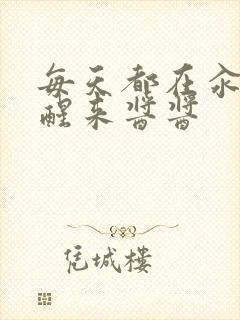 每天都在汆
醒来酱酱
凭城楼